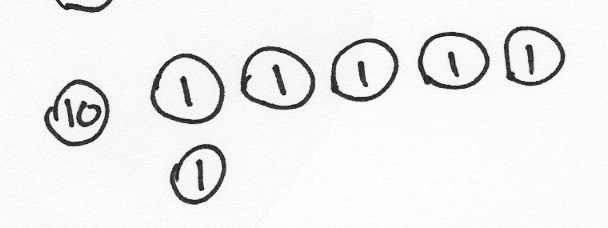 10 1 1 1 1 1
1